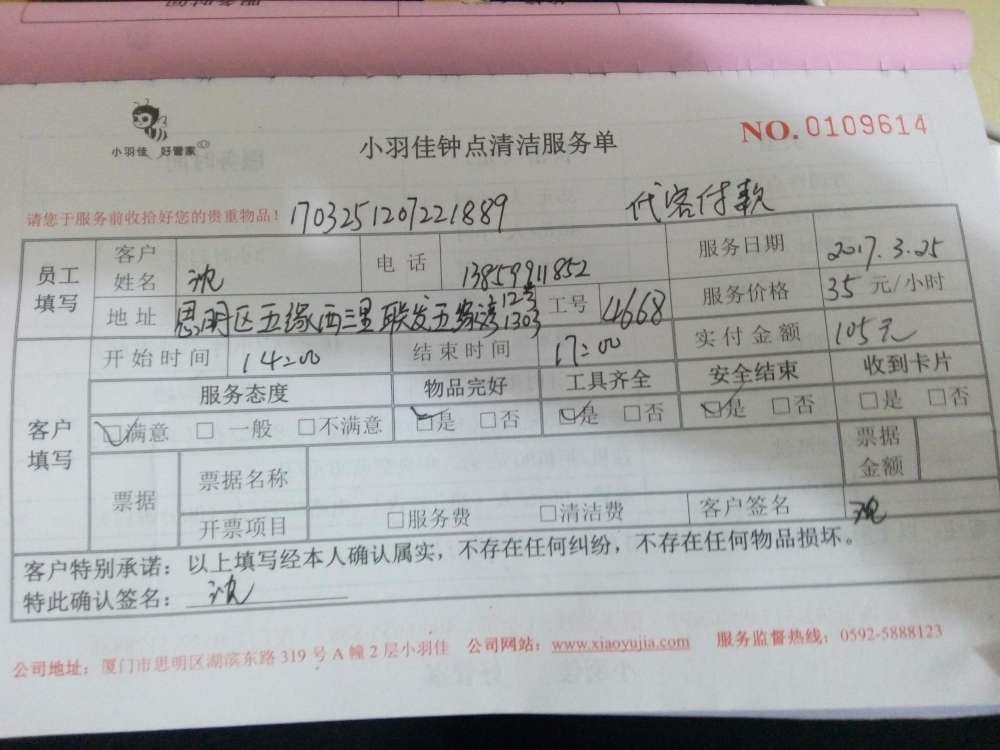 小羽佳 好管家
小羽佳钟点清洁服务单
NO.0109614
请您于服务前收拾好您的贵重物品！ 170325120722188９ 代客付款
员工填写
客户姓名 沈 电话 13859911852 服务日期 2017.3.25
地址 思明区五缘西三里联发五缘湾12号1303 工号 4668 服务价格 35 元/小时
客户填写
开始时间 14:00 结束时间 17:00 实付金额 105元
服务态度 物品完好 工具齐全 安全结束 收到卡片
☑满意 □ 一般 □不满意 ☑是 □否 ☑是 □否 ☑是 □否 □是 □否
票据 票据名称 票据金额
开票项目 □服务费 □清洁费 客户签名 沈
客户特别承诺：以上填写经本人确认属实，不存在任何纠纷，不存在任何物品损坏。
特此确认签名： 沈
公司地址：厦门市思明区湖滨东路 319 号 A 幢 2 层小羽佳 公司网站：www.xiaoyujia.com 服务监督热线：0592-5888123